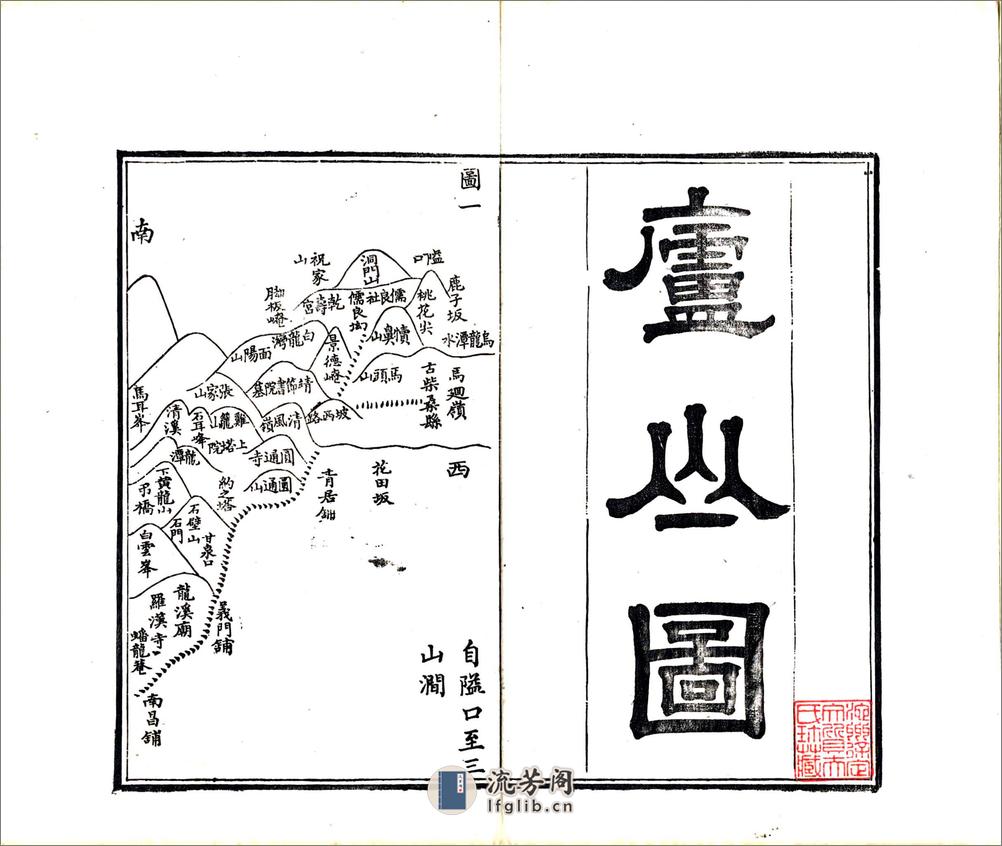 廬山圖
圖一
自隘口至三
山澗
南
西
隘口
鹿子坂
洞門山
祝家山
桃花尖
儒良社
儒良㘭
乾壽宮
烏龍潭水
犢鼻山
白龍灣
面陽山
景德
馬迴嶺
古柴桑縣
馬頭山
靖節書院墓
張家山
馬耳峯
清溪
石耳峰
雞籠山
上塔院
清風嶺
坡西路
龍潭
圓通寺
圓通山
花田坂
青居舖
下黃龍山
弔橋
石壁山
石門
甘泉口
白雲峯
龍溪廟
羅漢寺
蟠龍菴
義門舖
南昌舖
流芳阁
lfglib.cn